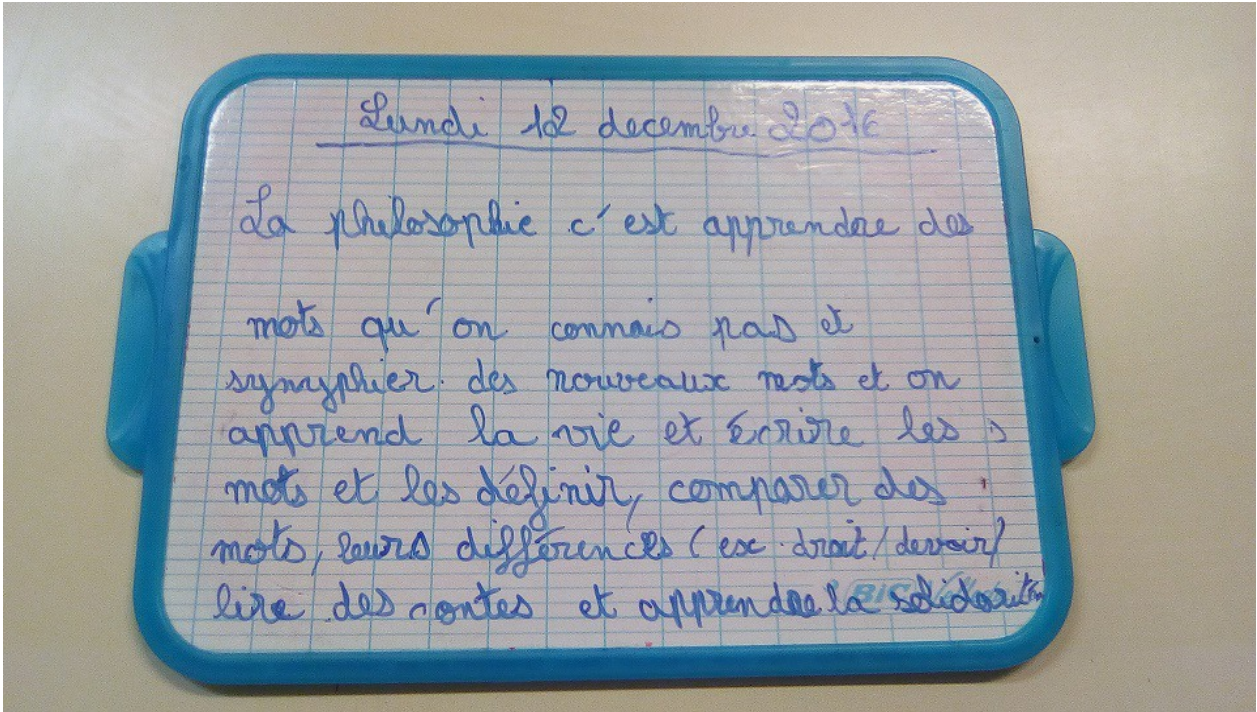 Lundi 12 decembre 2016
La philosophie c'est apprendre des
mots qu'on connais pas et
synyphier des nouveaux mots et on
apprend la vie et écrire les
mots et les définir, comparer des
mots, leurs différences (ex. droit/devoir/
lire des contes et apprendre la solidarité